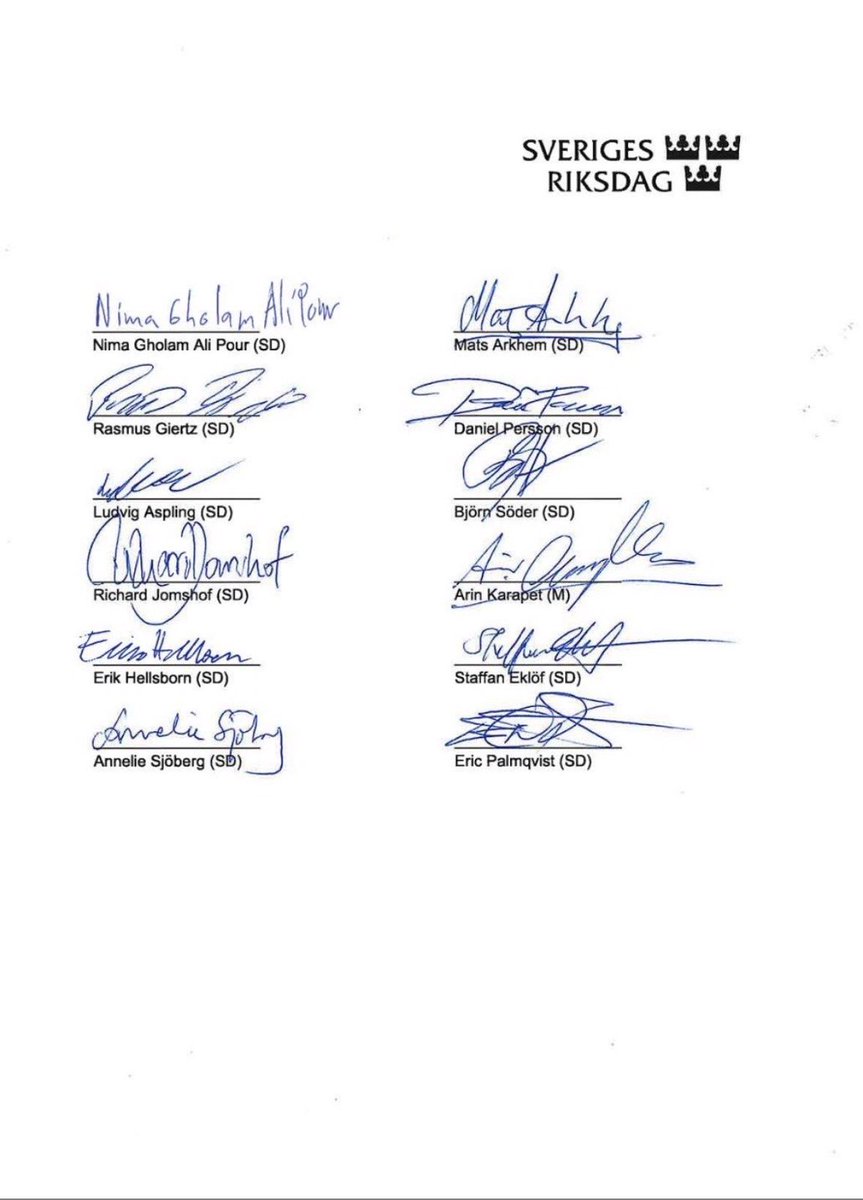 SVERIGES
RIKSDAG
Nima Gholam Ali Pour
Nima Gholam Ali Pour (SD)
Mats Arkhem (SD)
Rasmus Giertz (SD)
Daniel Persson (SD)
Ludvig Aspling (SD)
Björn Söder (SD)
Richard Jomshof (SD)
Arin Karapet (M)
Erik Hellsborn (SD)
Staffan Eklöf (SD)
Annelie Sjöberg
Annelie Sjöberg (SD)
Eric Palmqvist (SD)